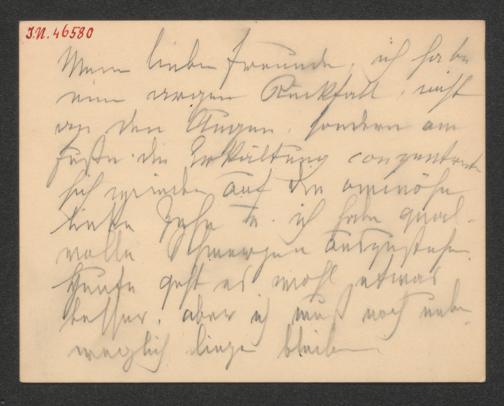 I.N. 46580
Meine lieben Freunde, ich habe
einen argen Rückfall, nicht
an den Augen, sondern am
Fuße. die Erkältung conzentrirte
sich wieder auf die ominöse
linke Zehe u. ich habe qual-
volle Schmerzen auszustehen.
Heute geht es wohl etwas
besser, aber ich muß noch unbe-
weglich liegen bleiben